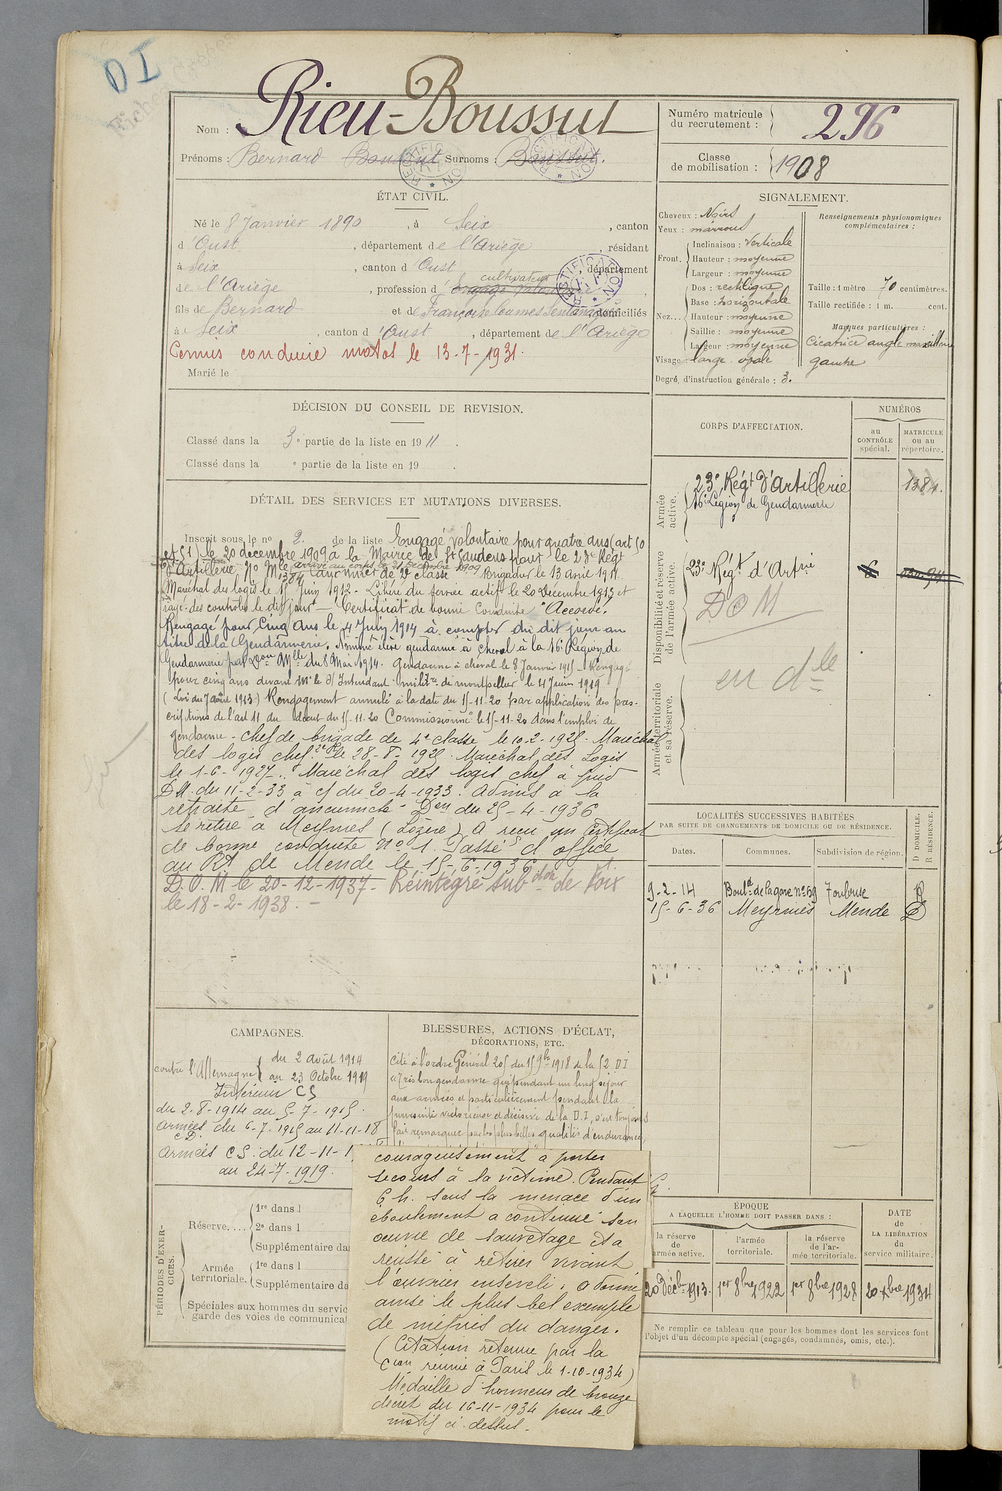 DI
Rieu-Boussut
Nom :
Prénoms : Bernard Boussut Surnoms : Boussut.
RECTIFICATION
ÉTAT CIVIL.
Né le 8 Janvier 1890, à Seix, canton
d'Oust, département de l'Ariège, résidant
à Seix, canton d'Oust, département
de l'Ariège, profession d cultivateur
fils de Bernard et de Françoise domiciliés
à Seix, canton d'Oust, département de l'Ariège
Permis conduire motos le 13-7-1931.
Marié le
DÉCISION DU CONSEIL DE REVISION.
Classé dans la 3e partie de la liste en 1911.
Classé dans la e partie de la liste en 19
DÉTAIL DES SERVICES ET MUTATIONS DIVERSES.
Inscrit sous le no 2. de la liste Engagé volontaire pour quatre ans (art 50
et 51) le 20 décembre 1909 à la Mairie de St Gaudens pour le 23e Régt
d'Artillerie, No Mle 1384 arrivé au corps le 21 décembre 1909 canonnier de 2e classe Brigadier le 13 Avril 1911
Maréchal des logis le 1er Juin 1912 - Libéré du service actif le 20 Décembre 1913 et
rayé des contrôles le dit jour - Certificat de bonne conduite "Accordé".
Rengagé pour cinq ans le 4 Juin 1914 à compter du dit jour au
titre de la Gendarmerie. Nommé élève gendarme à cheval à la 16e Légion de
Gendarmerie par Don Mlle du 8 Mai 1914. Gendarme à cheval le 8 Janvier 1915 - Rengagé
pour cinq ans devant Mr le S/Intendant militre de Montpellier le 4 Juin 1919
(Loi du 7 août 1913) Rengagement annulé à la date du 15-11-20 par application des pres-
criptions de l'art 11 du décret du 15-11-20 Commissionné le 15-11-20 dans l'emploi de
gendarme - Chef de brigade de 4e classe le 10-2-1925 - Maréchal
des logis chef le 28-8-1925 - Maréchal des logis
le 1-6-1927. Maréchal des logis chef à pied
DM. du 11-2-33 à cf du 20-4-1933. Admis à la
retraite d'ancienneté Don du 25-4-1936
Se retire à Meyrueis (Lozère) A reçu un certificat
de bonne conduite No 1. Passé d'office
au Rt de Mende le 15-6-1936
D.O.M le 20-12-1937 - Réintégré Subdon de Foix
le 18-2-1938. -
CAMPAGNES.
contre l'Allemagne { du 2 août 1914
au 23 Octobre 1919
Intérieur CS
du 2-8-1914 au 5-7-1915
Armées du 6-7-1915 au 11-11-18
CD.
Armées CS. du 12-11-1
au 24-7-1919.
BLESSURES, ACTIONS D'ÉCLAT,
DÉCORATIONS, ETC.
Cité à l'ordre Général 205 du 15 9bre 1918 de la 52 DI
"Très bon gendarme qui pendant un long séjour
aux armées et particulièrement pendant la
poursuite victorieuse et décisive de la D.I, s'est toujours
fait remarquer par les plus belles qualités d'endurance,
courageusement à porter
secours à la victime. Pendant
6 h. sous la menace d'un
éboulement a continué son
œuvre de sauvetage et a
réussi à retirer vivant
l'ouvrier enseveli. a donné
ainsi le plus bel exemple
de mépris du danger.
(Citation retenue par la
Cion réunie à Paris le 1-10-1934)
Médaille d'honneur de bronze
décret du 16-11-1934 pour le
motif ci-dessus.
PÉRIODES D'EXER-
CICES.
Réserve....
1re dans l
2e dans l
Supplémentaire da
Armée
territoriale.
1re dans l
Supplémentaire da
Spéciales aux hommes du servic
garde des voies de communicat
Numéro matricule
du recrutement :
296
Classe
de mobilisation :
1908
SIGNALEMENT.
Cheveux : Noirs
Yeux : marrons
Front.
Inclinaison : Verticale
Hauteur : moyenne
Largeur : moyenne
Nez...
Dos : rectiligne
Base : horizontale
Hauteur : moyenne
Saillie : moyenne
Largeur : moyenne
Visage : large ovale
Degré d'instruction générale : 3.
Renseignements physionomiques
complémentaires :
Taille : 1 mètre 70 centimètres.
Taille rectifiée : 1 m. cent.
Marques particulières :
Cicatrice angle maxillaire
gauche
CORPS D'AFFECTATION.
NUMÉROS
au
CONTRÔLE
spécial.
MATRICULE
ou au
répertoire.
Armée
active.
23e Régt d'Artillerie
1384.
16e Légion de Gendarmerie
Disponibilité et réserve
de l'armée active.
23e Régt d'Artrie
DOM
Armée territoriale
et sa réserve.
en dle
LOCALITÉS SUCCESSIVES HABITÉES
PAR SUITE DE CHANGEMENTS DE DOMICILE OU DE RÉSIDENCE.
Dates.
Communes.
Subdivision de région.
D DOMICILE.
R RÉSIDENCE.
9-2-14 Boulrd de la gare no 69 Toulouse R
15-6-36 Meyrueis Mende D
ÉPOQUE
A LAQUELLE L'HOMME DOIT PASSER DANS :
la réserve
de
l'armée active.
l'armée
territoriale.
la réserve
de l'ar-
mée territoriale.
DATE
de
LA LIBÉRATION
du
service militaire.
20 Décbre 1913. 1er 8bre 1922 1er 8bre 1928 20 xbre 1934
Ne remplir ce tableau que pour les hommes dont les services font
l'objet d'un décompte spécial (engagés, condamnés, omis, etc.).